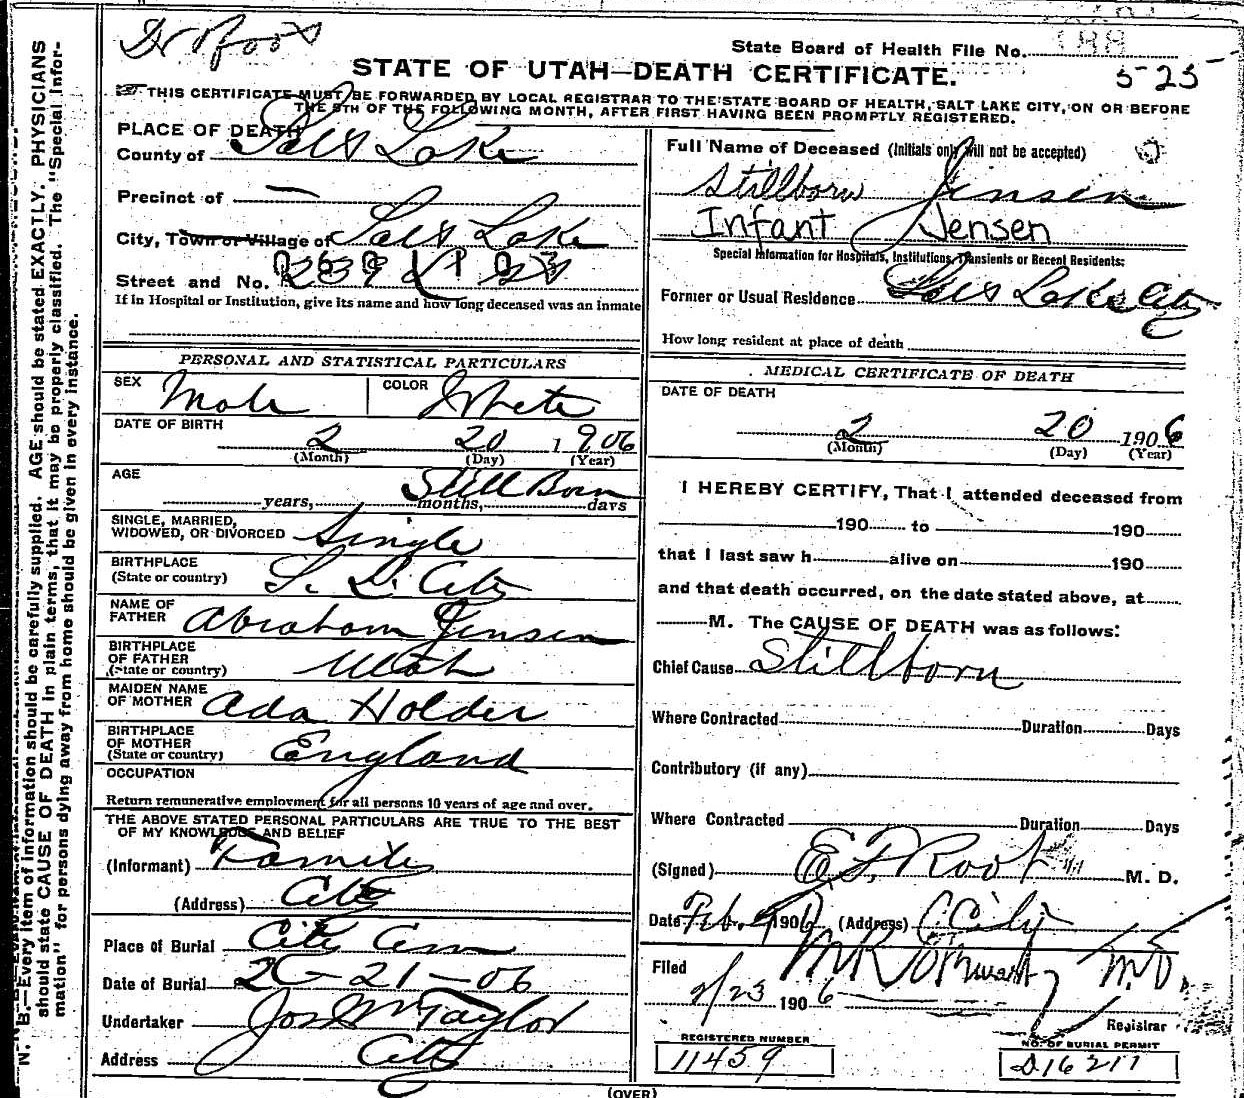 Dr Root
State Board of Health File No. 188
STATE OF UTAH—DEATH CERTIFICATE. 525
THIS CERTIFICATE MUST BE FORWARDED BY LOCAL REGISTRAR TO THE STATE BOARD OF HEALTH, SALT LAKE CITY, ON OR BEFORE
THE 5TH OF THE FOLLOWING MONTH, AFTER FIRST HAVING BEEN PROMPTLY REGISTERED.
PLACE OF DEATH
County of Salt Lake
Precinct of —
City, Town or Village of Salt Lake
Street and No.
If in Hospital or Institution, give its name and how long deceased was an inmate
Full Name of Deceased (Initials only will not be accepted)
Stillborn Jensen
Infant Jensen
Special Information for Hospitals, Institutions, Transients or Recent Residents:
Former or Usual Residence Salt Lake City
How long resident at place of death
PERSONAL AND STATISTICAL PARTICULARS
SEX Male COLOR White
DATE OF BIRTH
2 20 1906
(Month) (Day) (Year)
AGE Still Born
years, months, days
SINGLE, MARRIED,
WIDOWED, OR DIVORCED Single
BIRTHPLACE
(State or country) S. L. City
NAME OF
FATHER Abraham Jensen
BIRTHPLACE
OF FATHER
(State or country) Utah
MAIDEN NAME
OF MOTHER Ada Holder
BIRTHPLACE
OF MOTHER
(State or country) England
OCCUPATION
Return remunerative employment for all persons 10 years of age and over.
THE ABOVE STATED PERSONAL PARTICULARS ARE TRUE TO THE BEST
OF MY KNOWLEDGE AND BELIEF
(Informant) Family
(Address) City
Place of Burial City Cem
Date of Burial 2-21-06
Undertaker Jos Wm Taylor
Address City
MEDICAL CERTIFICATE OF DEATH
DATE OF DEATH
2 20 1906
(Month) (Day) (Year)
I HEREBY CERTIFY, That I attended deceased from
190 to 190
that I last saw h alive on 190
and that death occurred, on the date stated above, at
M. The CAUSE OF DEATH was as follows:
Chief Cause Stillborn
Where Contracted Duration Days
Contributory (if any)
Where Contracted Duration Days
(Signed) E. F. Root M. D.
Date Feb. 1906 (Address) City
Filed
2/23 1906
M.D.
Registrar
REGISTERED NUMBER
11459
NO. OF BURIAL PERMIT
D16217
(OVER)
N. B.—Every item of information should be carefully supplied. AGE should be stated EXACTLY. PHYSICIANS
should state CAUSE OF DEATH in plain terms, that it may be properly classified. The "Special Infor-
mation" for persons dying away from home should be given in every instance.